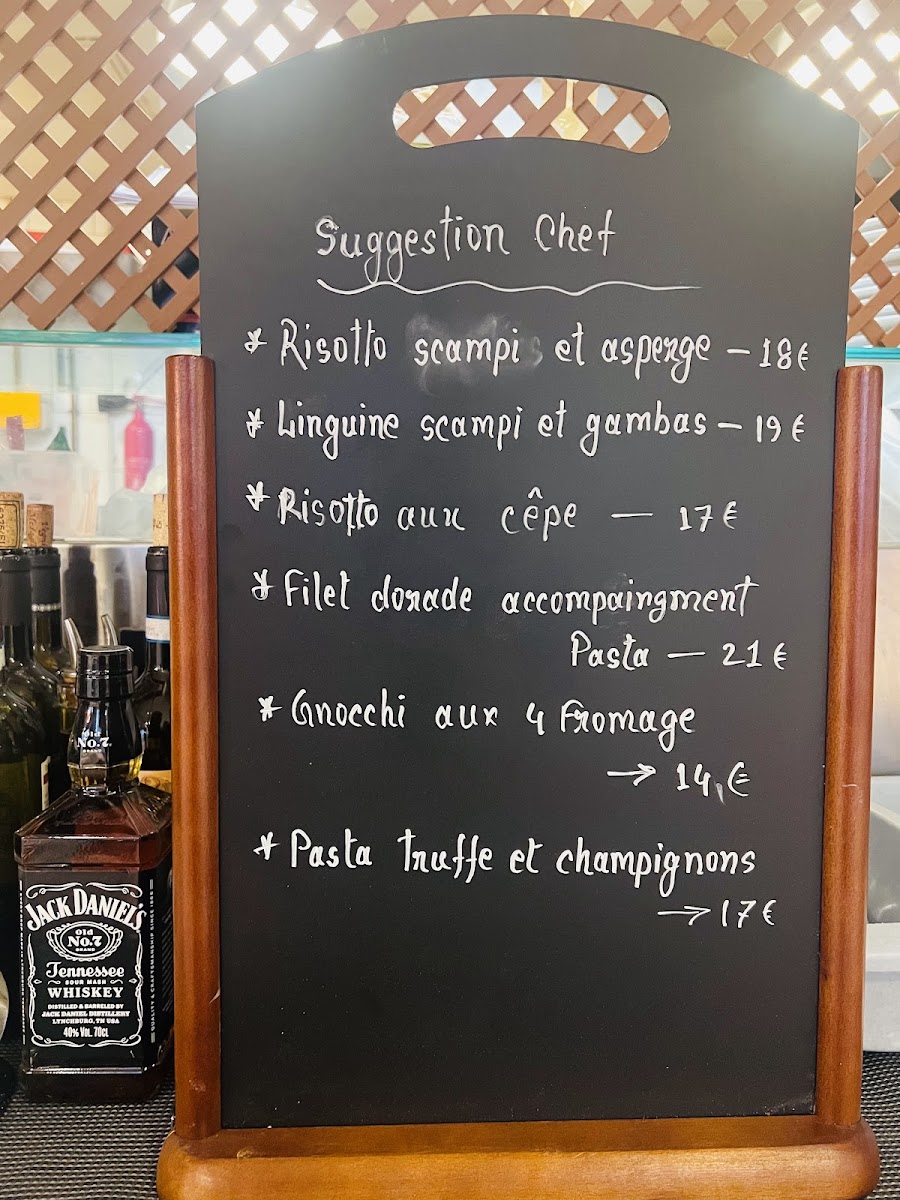 Suggestion Chef
* Risotto scampi et asperge - 18€
* Linguine scampi et gambas - 19€
* Risotto aux cêpe - 17€
* Filet dorade accompaingment
Pasta - 21€
* Gnocchi aux 4 Fromage
→ 14,€
* Pasta truffe et champignons
→ 17€
Old
No.7
BRAND
JACK DANIEL'S
Old
No.7
BRAND
Tennessee
SOUR MASH
WHISKEY
DISTILLED & BARRELED BY
JACK DANIEL DISTILLERY
LYNCHBURG, TN USA
40% VOL. 70CL